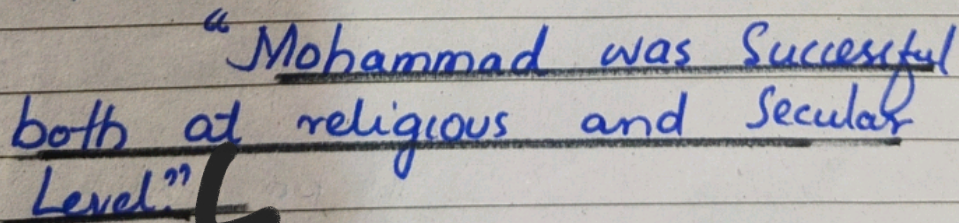 "Mohammad was Successful
both at religious and Secular
Level."